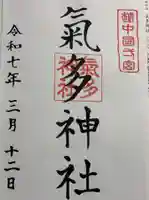 越中國一宮
氣多神社
氣多神社
令和七年 三月 十二日